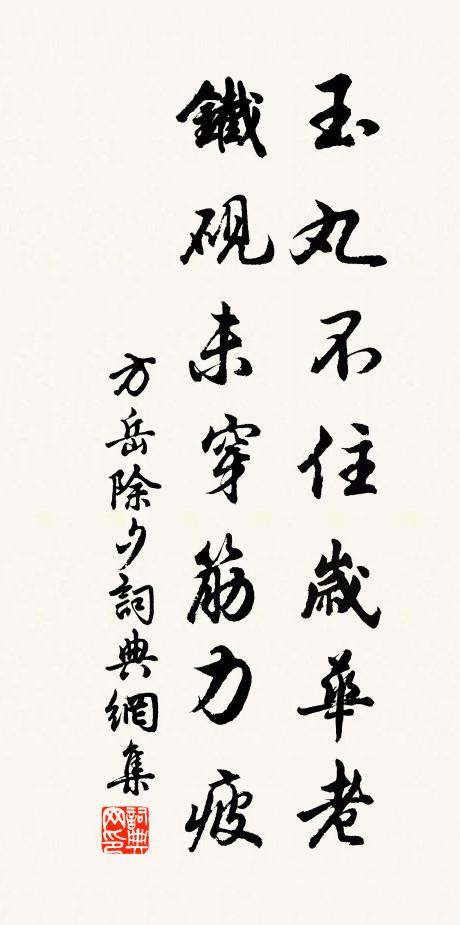 玉丸不住歲華老
鐵硯未穿筋力疲
方岳除夕詞典網集
詞典网印